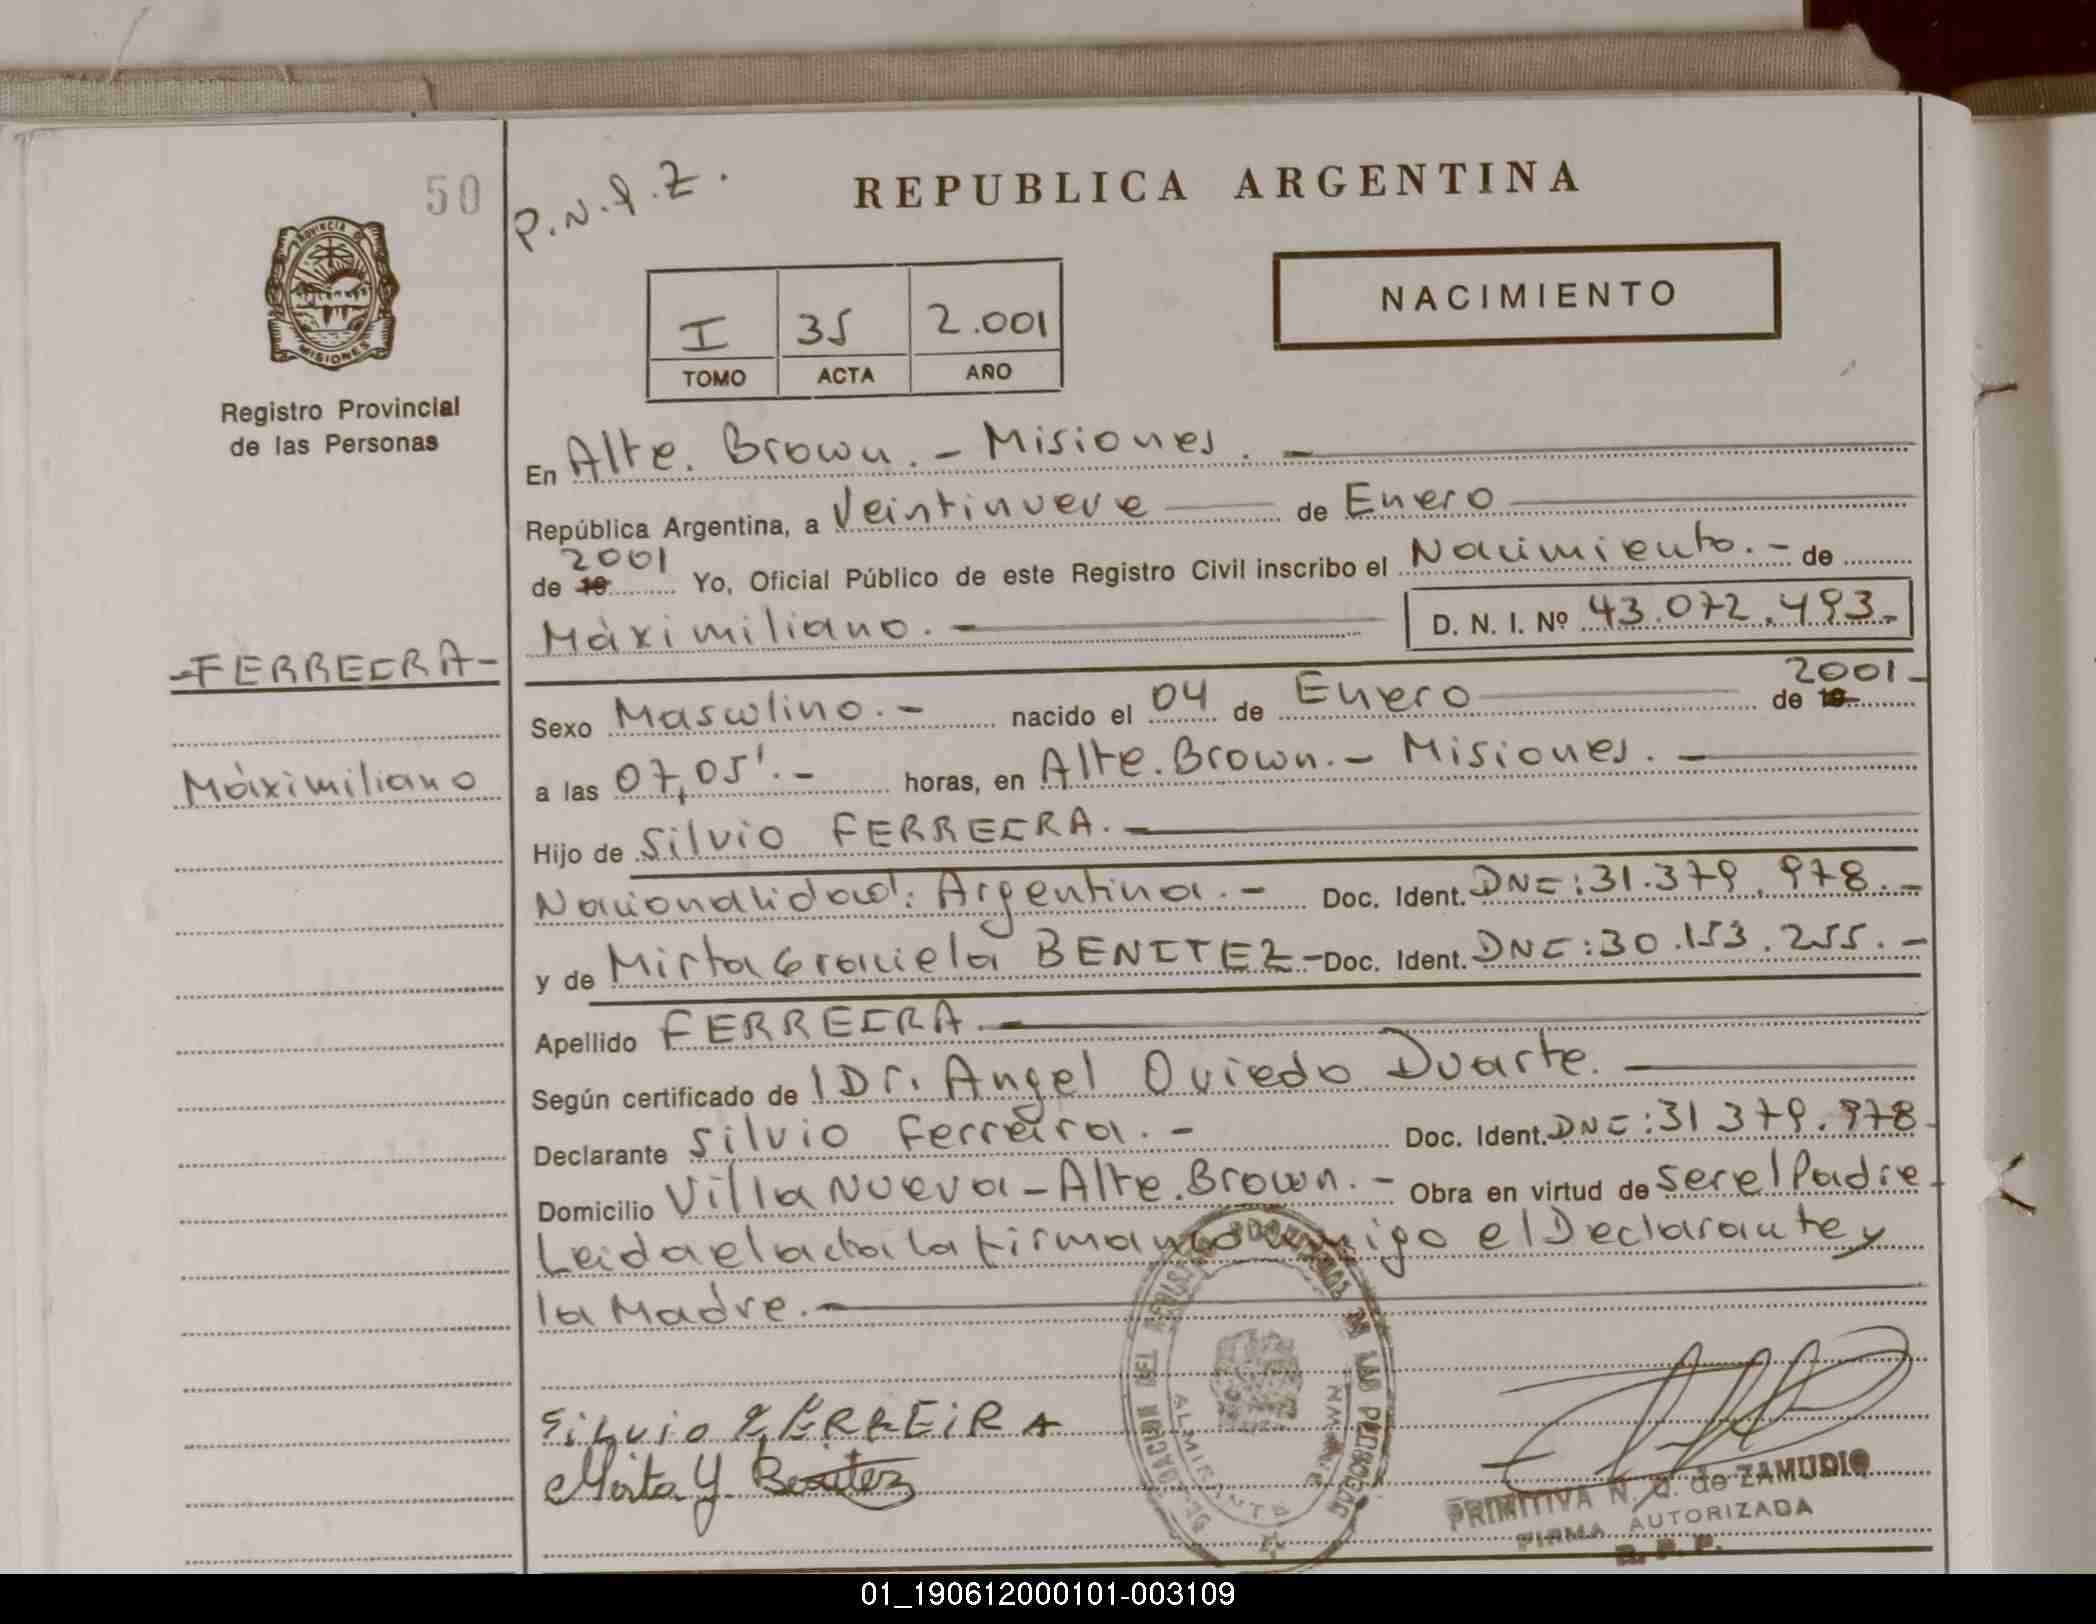 50
P.N.Q.Z.
REPUBLICA ARGENTINA
PROVINCIA DE
MISIONES
NACIMIENTO
I 35 2.001
TOMO ACTA AÑO
Registro Provincial
de las Personas
En Alte. Brown. - Misiones. -
República Argentina, a Veintinueve de Enero
de 19 2001 Yo, Oficial Público de este Registro Civil inscribo el Nacimiento. - de
Máximiliano. - D. N. I. Nº 43.072.493.-
-FERREIRA-
Máximiliano
Sexo Masculino. - nacido el 04 de Enero de 19 2001-
a las 07,05'. - horas, en Alte. Brown. - Misiones. -
Hijo de Silvio FERREIRA. -
Nacionalidad: Argentina. - Doc. Ident. DNI: 31.379.978. -
y de Mirta Graciela BENITEZ - Doc. Ident. DNI: 30.153.255. -
Apellido FERREIRA. -
Según certificado de l Dr. Angel Oviedo Duarte. -
Declarante Silvio Ferreira. - Doc. Ident. DNI: 31 379.978-
Domicilio Villa Nueva - Alte. Brown. - Obra en virtud de ser el Padre -
Leida el acta la firman conmigo el Declarante y
la Madre. -
SiLvio FERREiRA
Mirta Y. Benitez
DELEGACION DEL REGISTRO PROVINCIAL DE LAS PERSONAS
ALMIRANTE BROWN
PRIMITIVA N. Q. de ZAMUDIO
FIRMA AUTORIZADA
R. P. P.
01_190612000101-003109